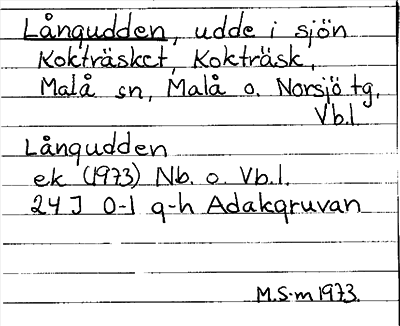 Långudden, udde i sjön
Kokträsket, Kokträsk,
Malå sn, Malå o. Norsjö tg,
Vb.l.
Långudden
ek (1973) Nb. o. Vb.l.
24 J 0-1 g-h Adakgruvan
M.S-m 1973.